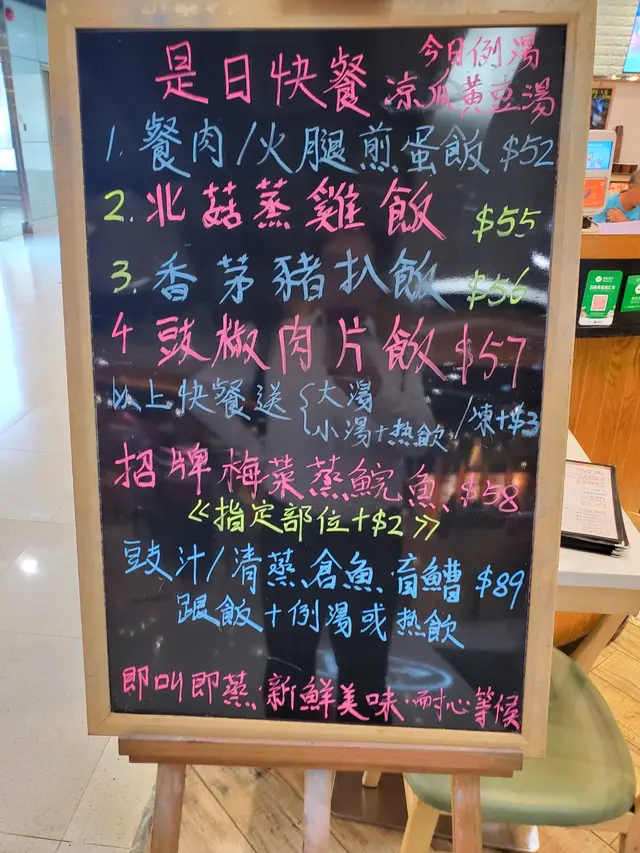 是日快餐
今日例湯
凉瓜黄豆湯
1. 餐肉/火腿煎蛋飯 $52
2. 北菇蒸雞飯 $55
3. 香茅豬扒飯 $56
4 豉椒肉片飯 $57
以上快餐送{大湯
小湯+热飲/凍+$3
招牌梅菜蒸鯇魚 $58
≪指定部位+$2≫
豉汁/清蒸倉魚 盲鰽 $89
跟飯+例湯或热飲
即叫即蒸·新鮮美味·耐心等候